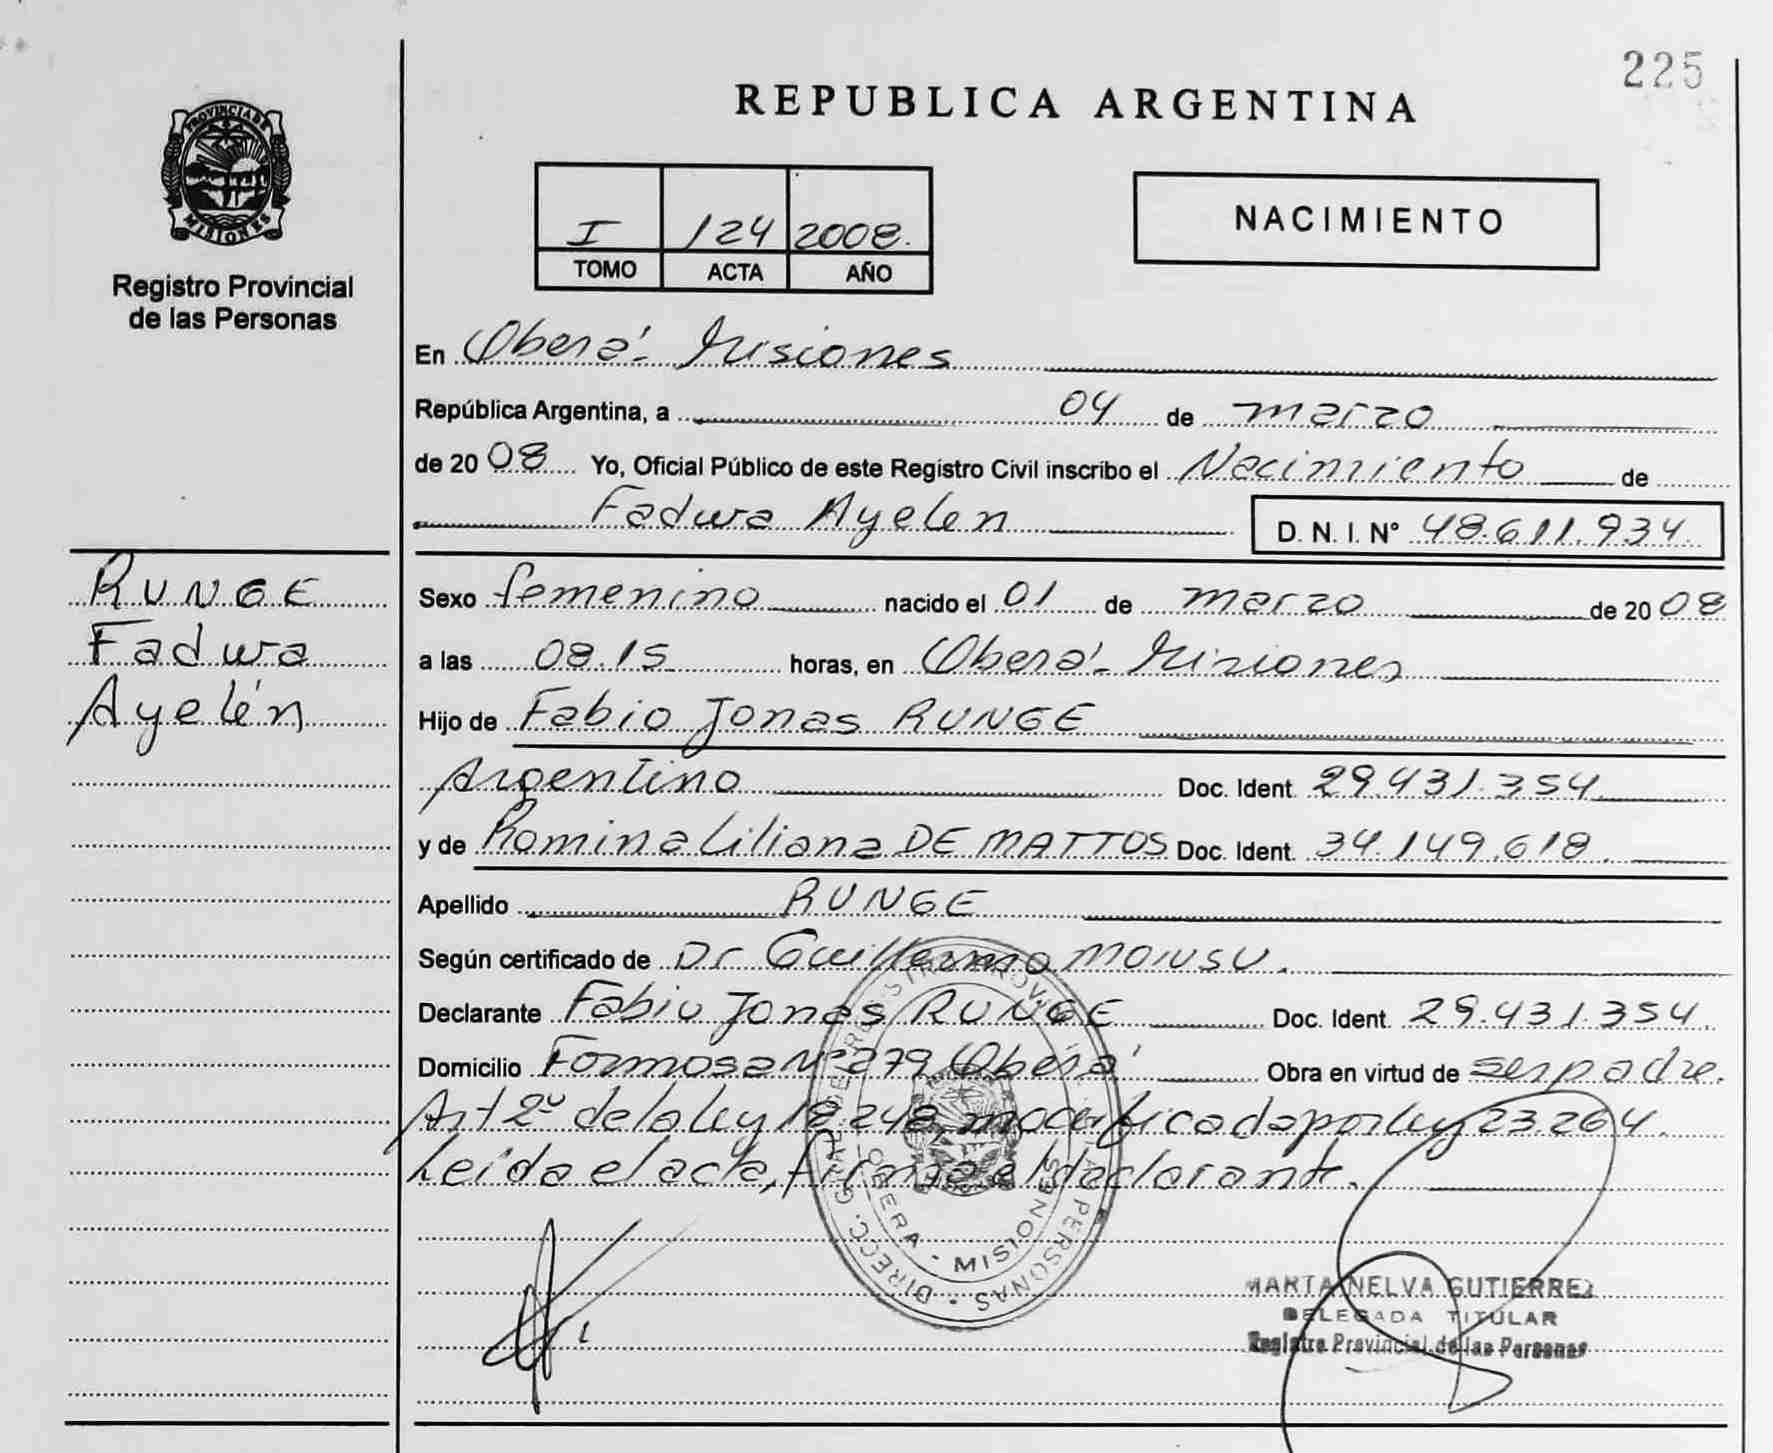 225
REPUBLICA ARGENTINA
PROVINCIA DE
MISIONES
Registro Provincial
de las Personas
I 124 2008.
TOMO ACTA AÑO
NACIMIENTO
En Oberá - Misiones
República Argentina, a 04 de marzo
de 2008 Yo, Oficial Público de este Registro Civil inscribo el Nacimiento de
Fadwa Ayelen D. N. I. Nº 48.611.934.
RUNGE
Fadwa
Ayelén
Sexo femenino nacido el 01 de marzo de 2008
a las 08.15 horas, en Oberá - Misiones
Hijo de Fabio Jonas RUNGE
Argentino Doc. Ident. 29.431.354.
y de Romina Liliana DE MATTOS Doc. Ident. 34.149.618.
Apellido RUNGE
Según certificado de Dr Guillermo
Declarante Fabio Jonas RUNGE Doc. Ident. 29.431.354.
Domicilio Formosa Nº 279 Oberá Obra en virtud de ser padre.
Art 2º de la ley 18.248, modificada por ley 23.264.
Leida el acta, firma el declarante.
OBERA - MISIONES
MARTA NELVA GUTIERREZ
DELEGADA TITULAR
Registro Provincial de las Personas